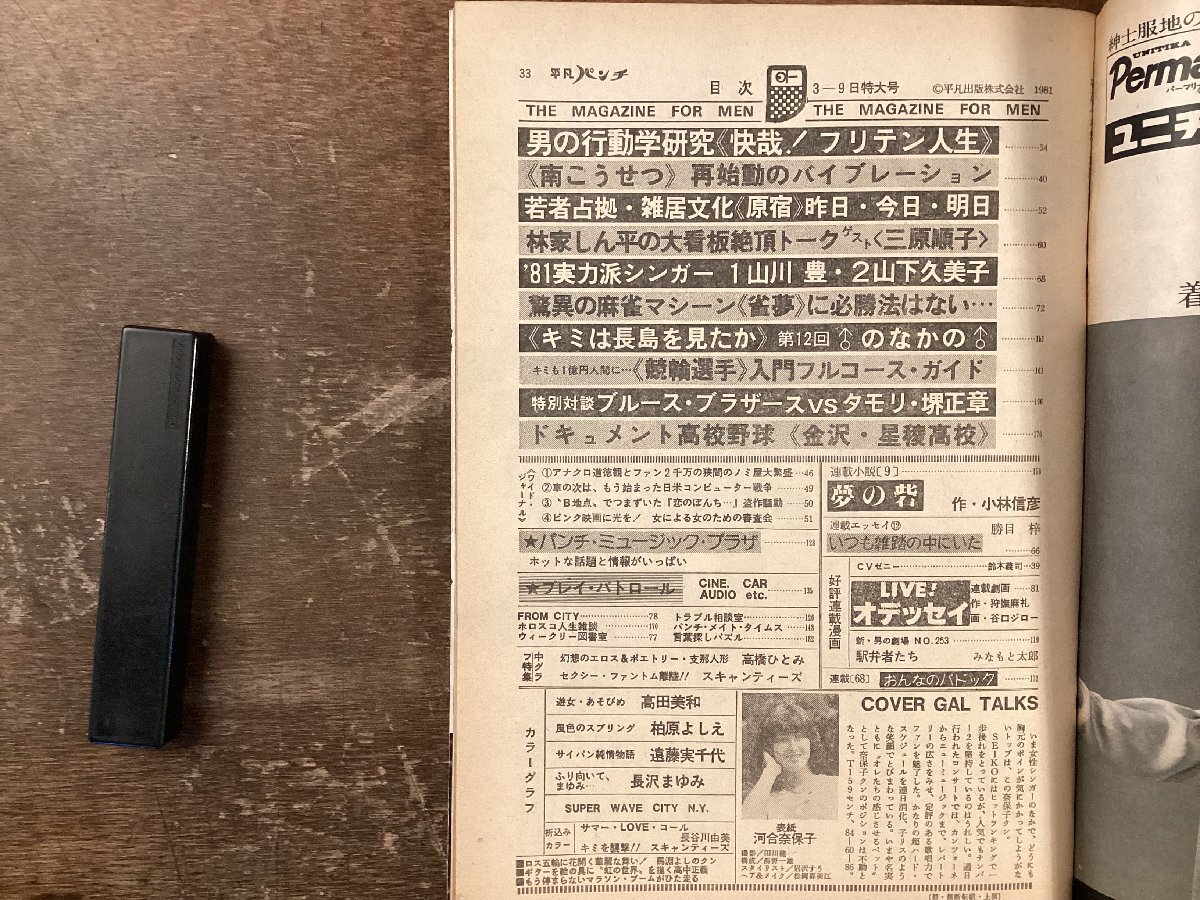 33 平凡パンチ
目次
3―9日特大号
©平凡出版株式会社 1981
THE MAGAZINE FOR MEN
THE MAGAZINE FOR MEN
男の行動学研究《快哉!フリテン人生》 34
《南こうせつ》再始動のバイブレーション 40
若者占拠・雑居文化《原宿》昨日・今日・明日 52
林家しん平の大看板絶頂トークゲスト〈三原順子〉 60
'81実力派シンガー 1山川 豊・2山下久美子 68
驚異の麻雀マシーン《雀夢》に必勝法はない… 72
《キミは長島を見たか》第12回♂のなかの♂
キミも1億円人間に…《競輪選手》入門フルコース・ガイド
特別対談ブルース・ブラザースvsタモリ・堺正章
ドキュメント高校野球《金沢・星稜高校》 176
《ワイドジャーナル》
①アナクロ道徳観とファン2千万の狭間のノミ屋大繁盛 46
②車の次は、もう始まった日米コンピューター戦争 49
③〝B地点〟でつまずいた『恋のぼんち…』盗作騒動 50
④ピンク映画に光を! 女による女のための審査会 51
★パンチ・ミュージック・プラザ
ホットな話題と情報がいっぱい
★プレイ・パトロール
CINE. CAR
AUDIO etc. 135
FROM CITY 78
ホロスコ人生雑談
ウィークリー図書室 77
トラブル相談室
パンチ・メイト・タイムス
言葉探しパズル
中グラフ特集
幻想のエロス&ポエトリー・支那人形 高橋ひとみ
セクシー・ファントム離陸!! スキャンティーズ
連載小説[9]
夢の砦 作・小林信彦
連載エッセイ⑫
勝目 梓
いつも雑踏の中にいた 66
好評連載漫画
CVゼニー 鈴木義司 39
LIVE!
オデッセイ
連載劇画 81
作・狩撫麻礼
画・谷口ジロー
新・男の劇場 NO.253 119
駅弁者たち みなもと太郎
連載[68] おんなのパドック
カラーグラフ
遊女・あそびめ 高田美和
風色のスプリング 柏原よしえ
サイパン純情物語 遠藤実千代
ふり向いて、まゆみ… 長沢まゆみ
SUPER WAVE CITY N.Y.
折込みカラー
サマー・LOVE・コール 長谷川由美
キミを襲撃!! スキャンティーズ
ギターを絵の具に〝虹の世界〟を描く高中正義
もう停まらないマラソン・ブームがひた走る
表紙
河合奈保子
COVER GAL TALKS
いま女性シンガーのなかで、どうにも
胸元のボインが気にかかってしょうがな
いトップは、この奈保子クン。
SEIKOにはヒットランキングで一
歩後れをとっているが、人気でもナンバ
ー2を堅持しているのはうれしい。過日
行われたコンサートでは、カンツォーネ
からニューミュージックまで、レパート
リーの広さをみせ、定評のある歌唱力で
ファンを魅了した。かなりの超ハード・
スケジュールを連日消化、子リスのよう
な笑顔でとびまわっている。いまや名実
ともに〝オレたちの感じさせるペット〟
として奈保子クンのポジションは不動と
なった。T159センチ、84―60―86。
紳士服地の
UNITIKA
Perma
パーマリ
ユニチ
着